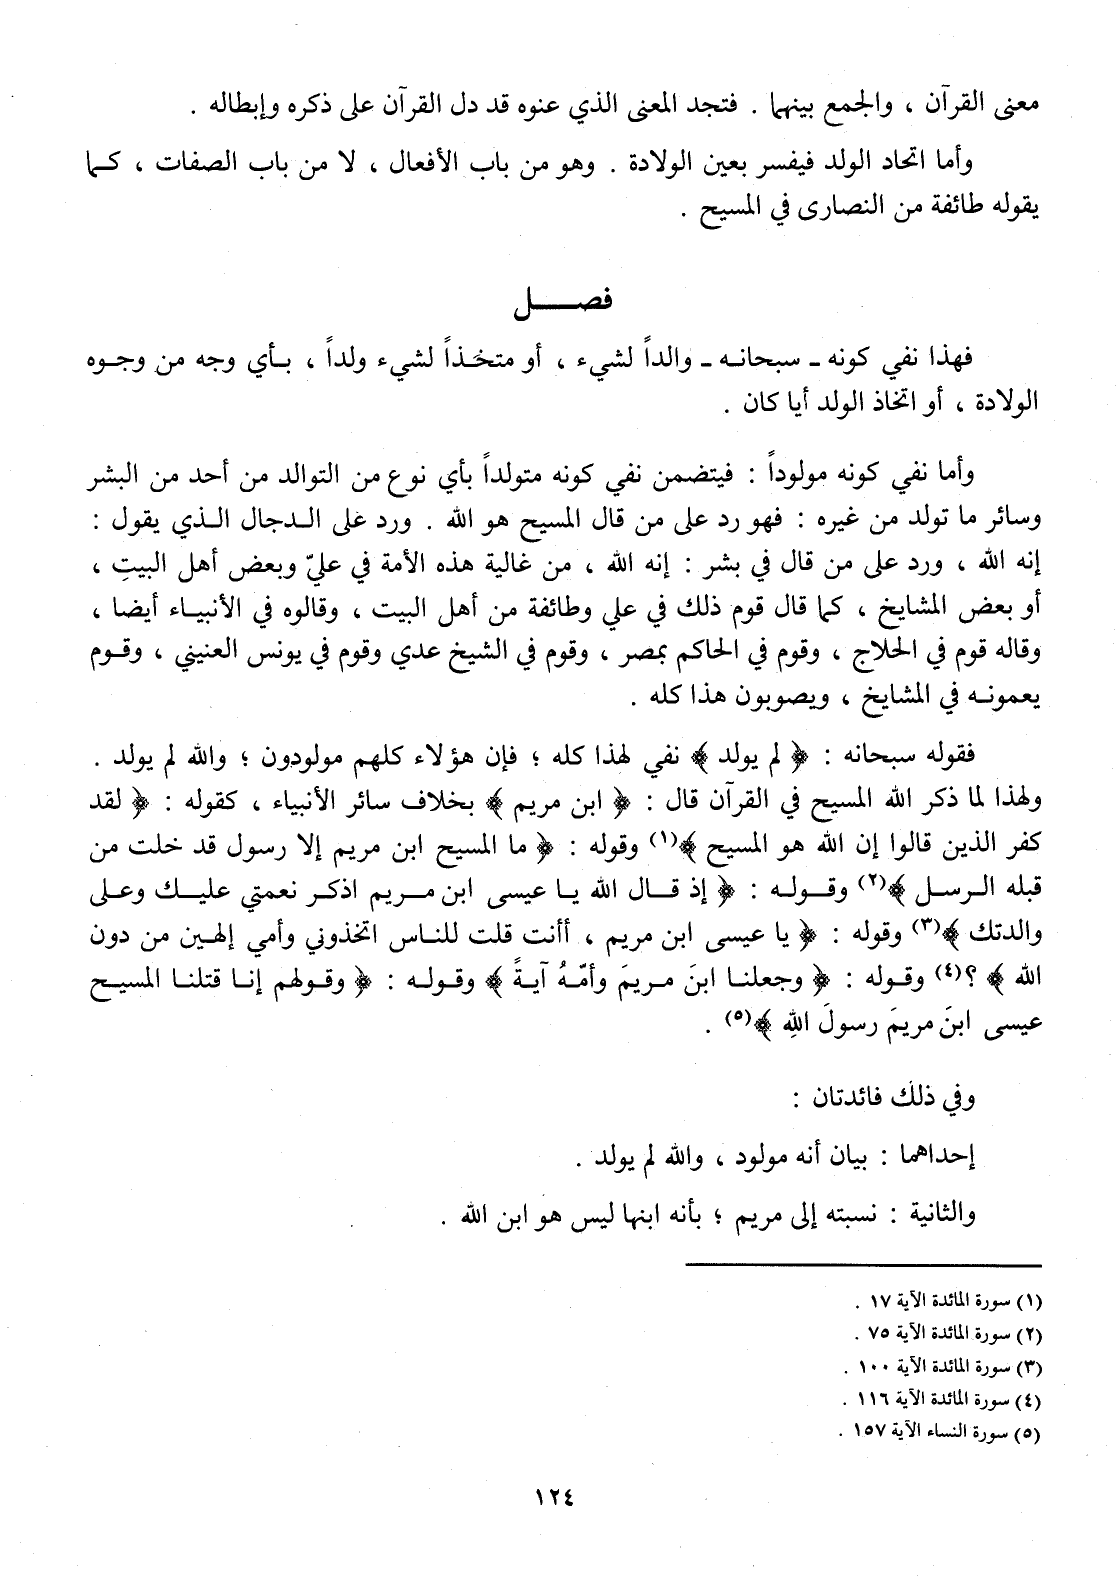 معنى القرآن ، والجمع بينها . فتجد المعنى الذي عنوه قد دل القرآن على ذكره وإبطاله .
وأما اتحاد الولد فيفسر بعين الولادة . وهو من باب الأفعال ، لا من باب الصفات ، كما
يقوله طائفة من النصارى في المسيح .
فصـــــل
فهذا نفي كونه ـ سبحانه ـ والداً لشيء ، أو متخذاً لشيء ولداً ، بأي وجه من وجوه
الولادة ، أو اتخاذ الولد أيا كان .
وأما نفي كونه مولوداً : فيتضمن نفي كونه متولداً بأي نوع من التوالد من أحد من البشر
وسائر ما تولد من غيره : فهو رد على من قال المسيح هو الله . ورد على الدجال الذي يقول :
إنه الله ، ورد على من قال في بشر : إنه الله ، من غالية هذه الأمة في عليّ وبعض أهل البيتِ ،
أو بعض المشايخ ، كما قال قوم ذلك في علي وطائفة من أهل البيت ، وقالوه في الأنبياء أيضا ،
وقاله قوم في الحلاج ، وقوم في الحاكم بمصر ، وقوم في الشيخ عدي وقوم في يونس العنيني ، وقوم
يعمونه في المشايخ ، ويصوبون هذا كله .
فقوله سبحانه : ﴿ لم يولد ﴾ نفي لهذا كله ؛ فإن هؤلاء كلهم مولودون ؛ والله لم يولد .
ولهذا لما ذكر الله المسيح في القرآن قال : ﴿ ابن مريم ﴾ بخلاف سائر الأنبياء ، كقوله : ﴿ لقد
كفر الذين قالوا إن الله هو المسيح ﴾(١) وقوله : ﴿ ما المسيح ابن مريم إلا رسول قد خلت من
قبله الرسل ﴾(٢) وقوله : ﴿ إذ قال الله يا عيسى ابن مريم اذكر نعمتي عليك وعلى
والدتك ﴾(٣) وقوله : ﴿ يا عيسى ابن مريم ، أأنت قلت للناس اتخذوني وأمي إلهين من دون
الله ﴾ ؟(٤) وقوله : ﴿ وجعلنا ابنَ مريمَ وأمّهُ آيةً ﴾ وقوله : ﴿ وقولهم إنا قتلنا المسيح
عيسى ابنَ مريمَ رسولَ اللهِ ﴾(٥) .
وفي ذلك فائدتان :
إحداهما : بيان أنه مولود ، والله لم يولد .
والثانية : نسبته إلى مريم ؛ بأنه ابنها ليس هو ابن الله .
(١) سورة المائدة الآية ١٧ .
(٢) سورة المائدة الآية ٧٥ .
(٣) سورة المائدة الآية ١٠٠ .
(٤) سورة المائدة الآية ١١٦ .
(٥) سورة النساء الآية ١٥٧ .
١٢٤